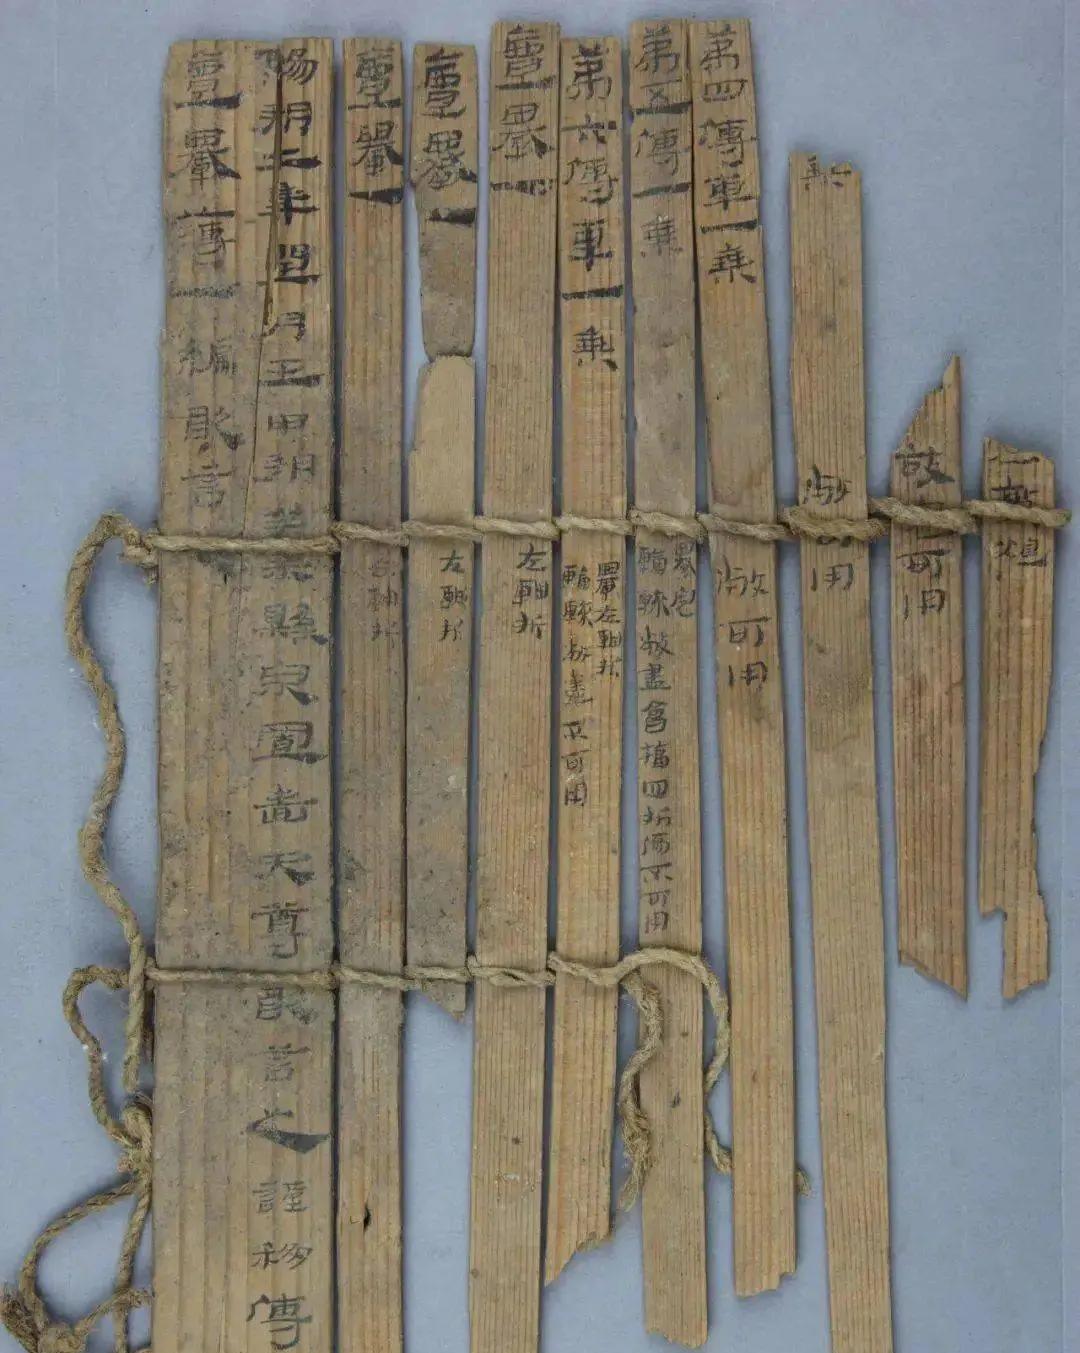 一乘
敝可用
乘 敝可用
第四傳車一乘 敝可用
第五傳一乘
轝完
輪轅敝盡會楅四折傷不可用
第六傳車一乘
轝左軸折
輪轅敝盡不可用
亶轝一 左軸折
亶轝一 左軸折
亶轝一 右軸折
陽朔二年閏月壬申朔癸未縣泉置嗇夫尊敢言之謹移傳
亶轝薄一編敢言